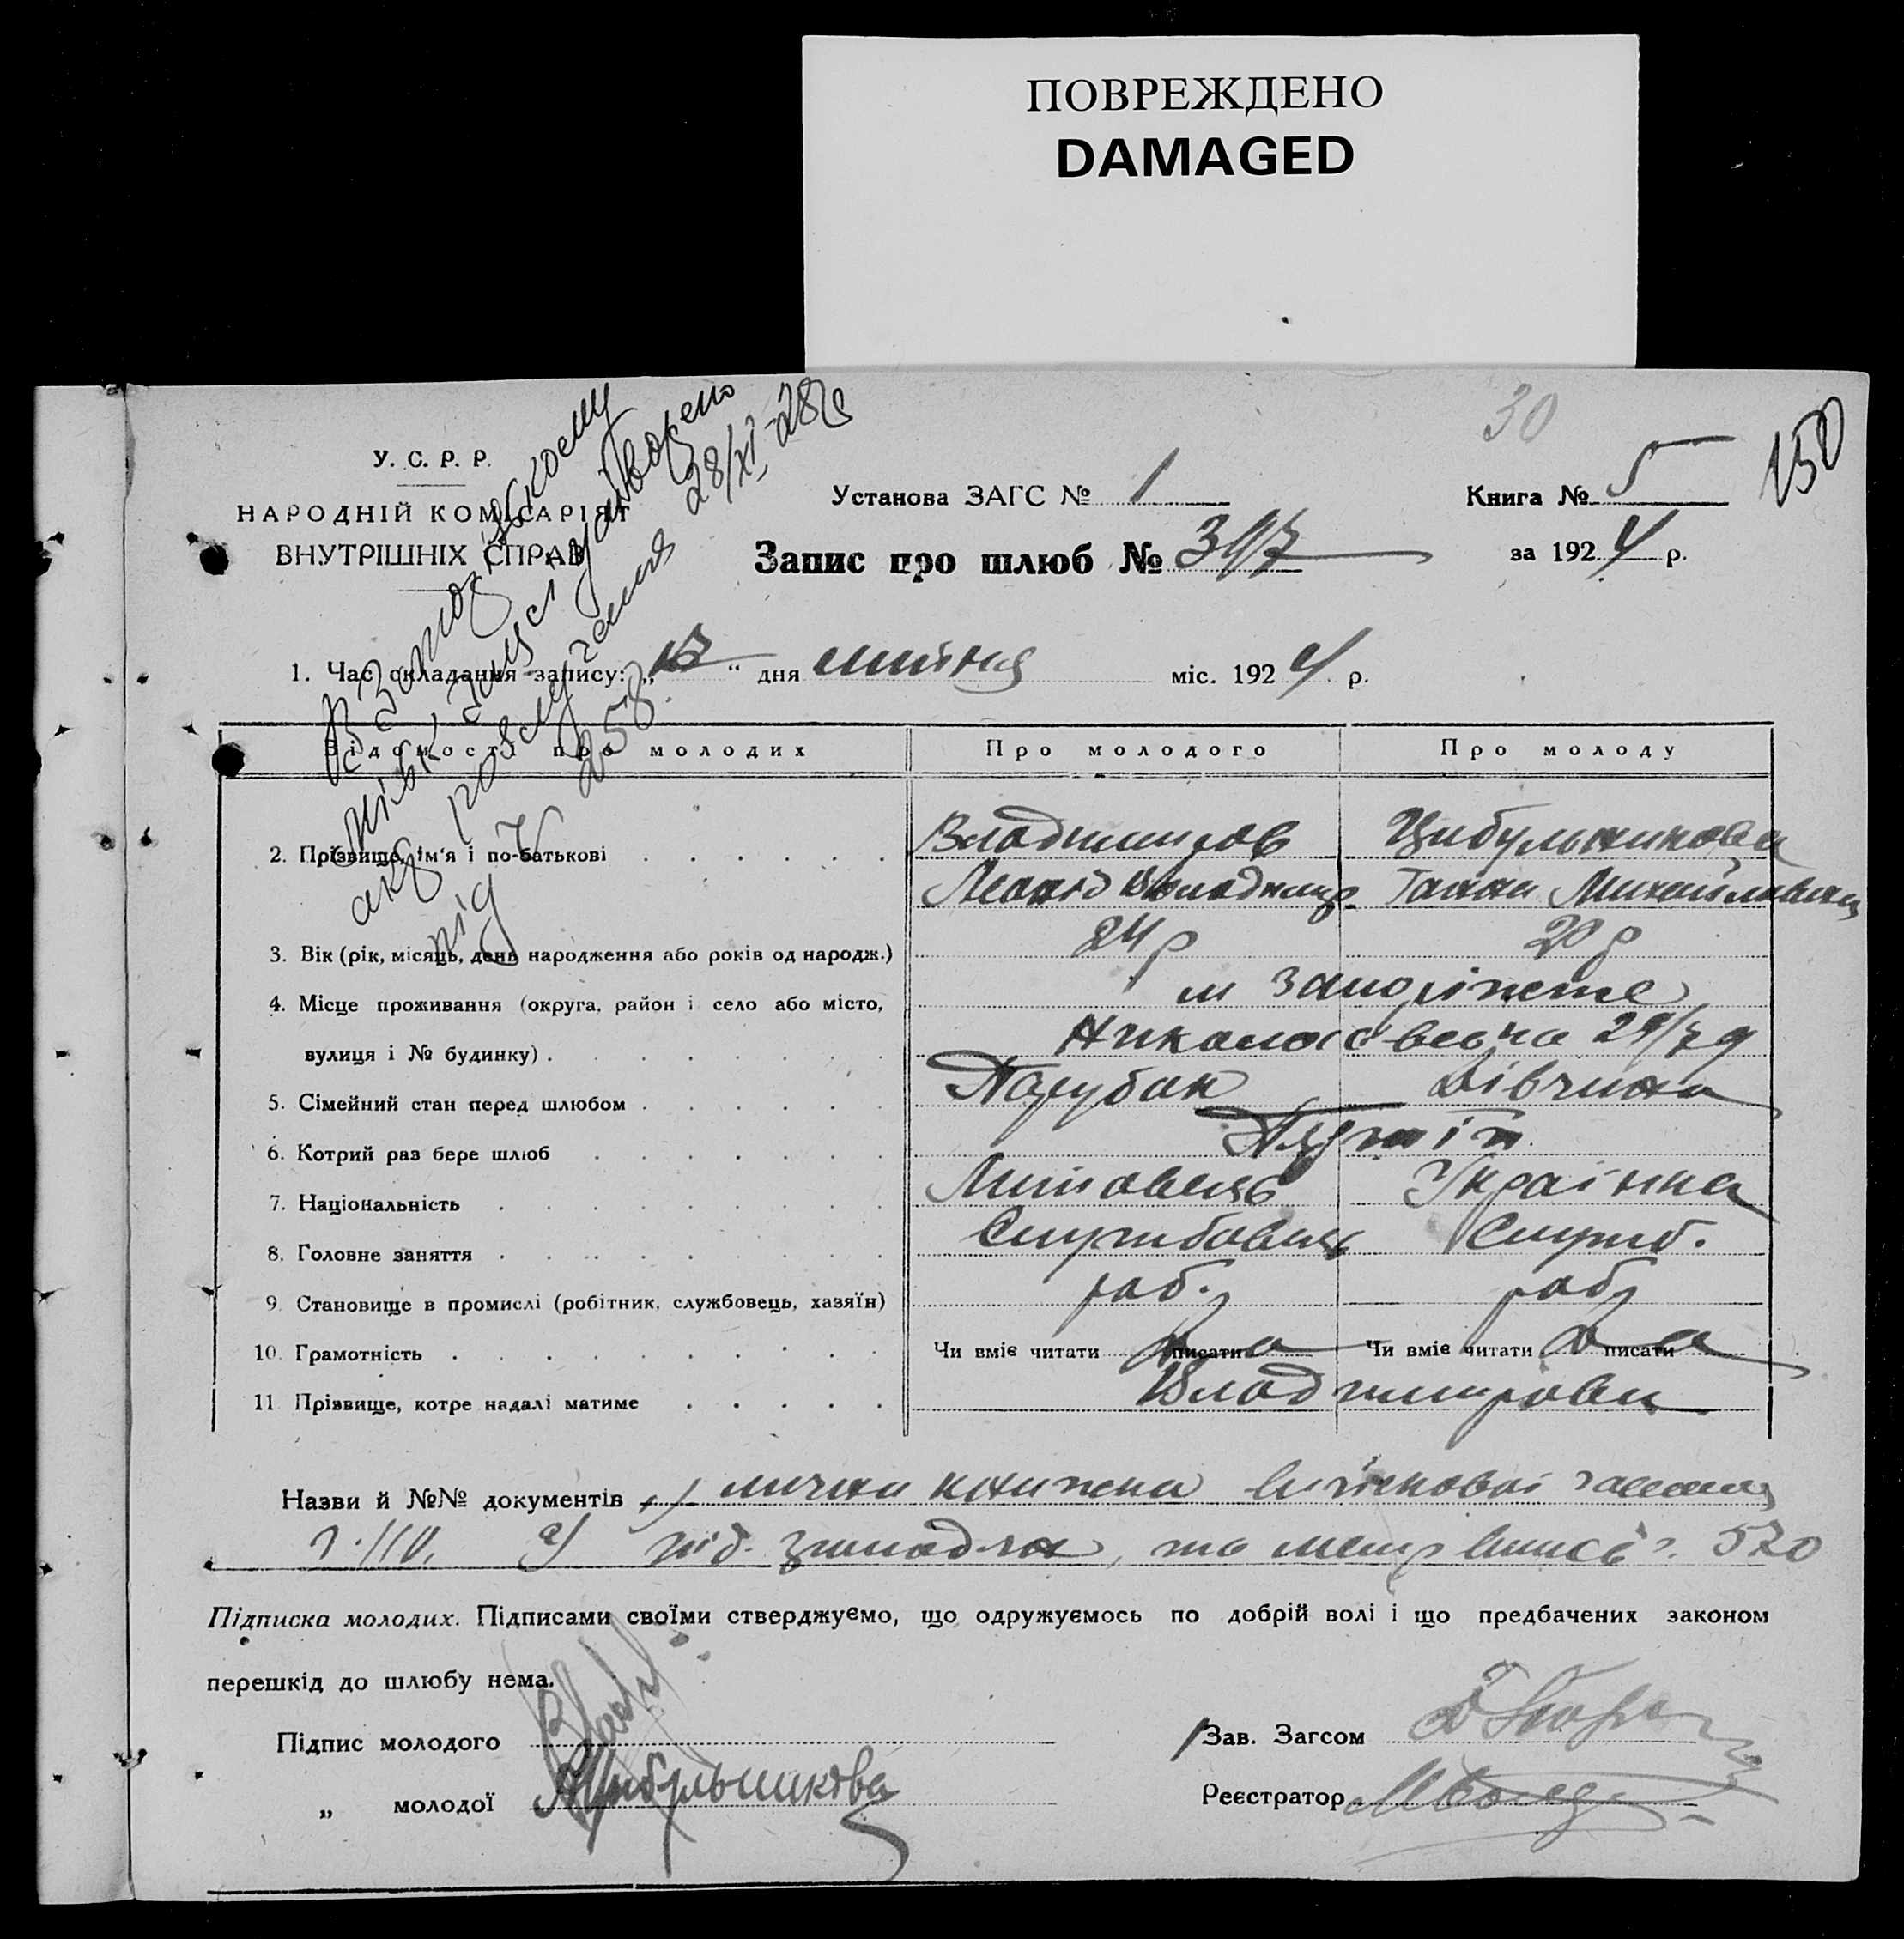 ПОВРЕЖДЕНО
DAMAGED
30
150
У. С. Р. Р.
НАРОДНІЙ КОМІСАРІЯТ
ВНУТРІШНІХ СПРАВ
Установа ЗАГС № 1
Книга № 5
Запис про шлюб № 397
за 1924 р.
В Запорізькому
акт розлучення 28/XI-28
під Ч 258.
1. Час складання запису: „17“ дня липня міс. 1924 р.
Відомості про молодих Про молодого Про молоду
2. Прізвище, ім'я і по-батькові Владимиров Цибульникова
Леонід Володимир. Ганна Михайлівна
3. Вік (рік, місяць, день народження або років од народж.) 24 р 20 р
4. Місце проживання (округа, район і село або місто, м Запоріжжє
вулиця і № будинку) Николаєвська 29/79
5. Сімейний стан перед шлюбом Парубок Дівчина
6. Котрий раз бере шлюб
7. Національність Литовець Українка
8. Головне заняття Службовець Служб.
9. Становище в промислі (робітник, службовець, хазяїн) роб. роб
10. Грамотність Чи вміє читати писати Да Чи вміє читати писати Да
11. Прізвище, котре надалі матиме Владимирови
Назви й №№ документів 1) лична книжка військової
ч. 110. 2) та метр випись ч. 570
Підписка молодих. Підписами своїми стверджуємо, що одружуємось по добрій волі і що предбачених законом
перешкід до шлюбу нема.
Підпис молодого
Зав. Загсом
„ молодої АЦибульникова
Реєстратор